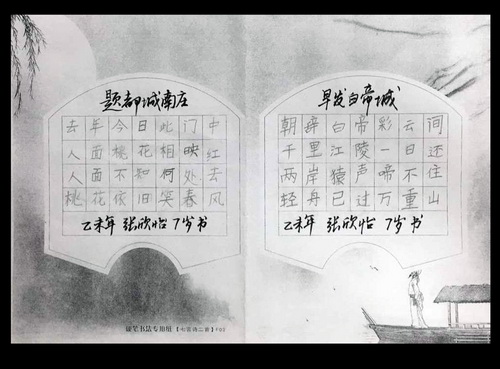 题都城南庄
去年今日此门中
人面桃花相映红
人面不知何处去
桃花依旧笑春风
乙未年 张欣怡 7岁书
早发白帝城
朝辞白帝彩云间
千里江陵一日还
两岸猿声啼不住
轻舟已过万重山
乙未年 张欣怡 7岁书
硬笔书法专用纸【七言诗二首】F02